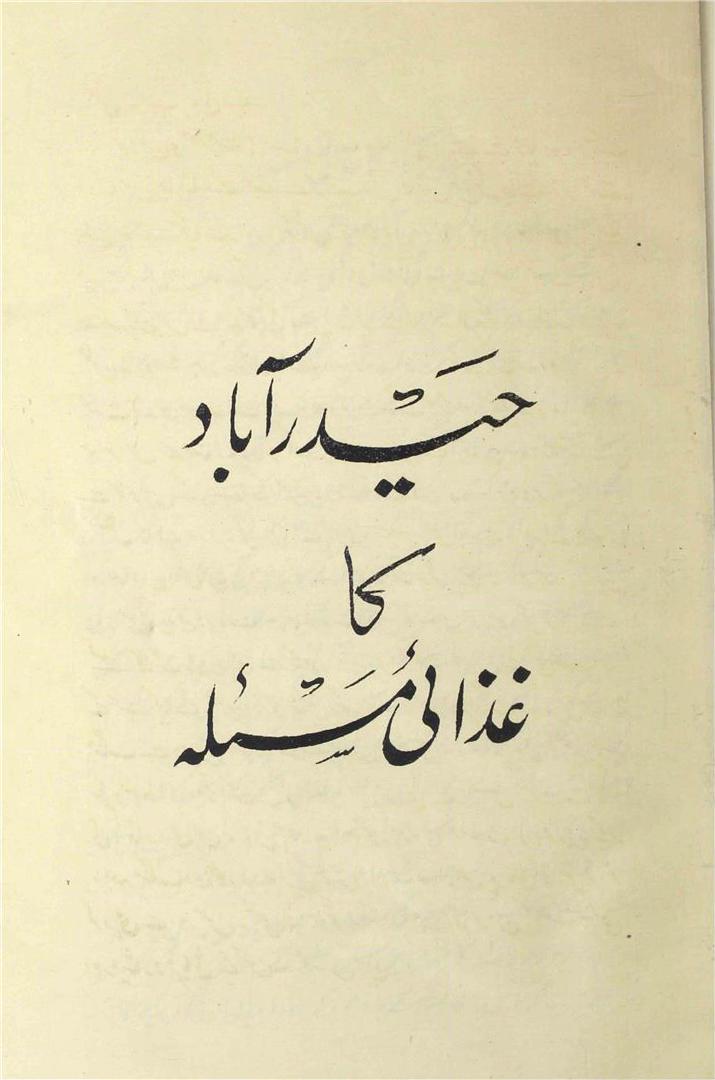 حیدرآباد
کا
غذائی مسئلہ